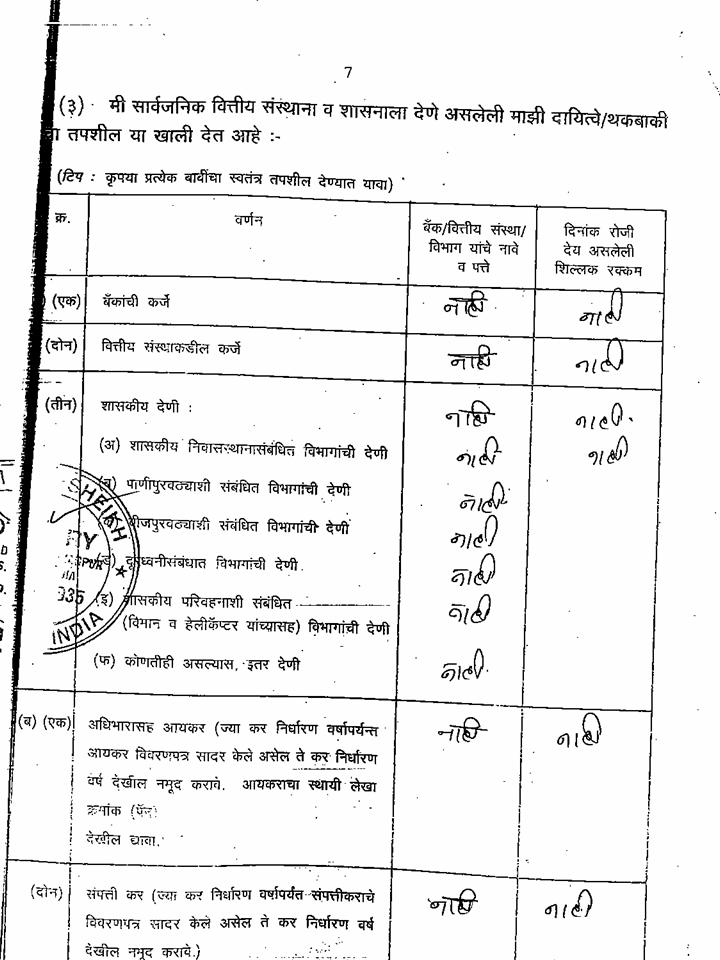 7
(३) मी सार्वजनिक वित्तीय संस्थाना व शासनाला देणे असलेली माझी दायित्वे/थकबाकी
चा तपशील या खाली देत आहे :-
(टिप : कृपया प्रत्येक बाबींचा स्वतंत्र तपशील देण्यात यावा)
क्र. वर्णन बँक/वित्तीय संस्था/ दिनांक रोजी
विभाग यांचे नावे देय असलेली
व पत्ते शिल्लक रक्कम
(एक) बँकांची कर्जे नाही नाही
(दोन) वित्तीय संस्थाकडील कर्जे नाही नाही
(तीन) शासकीय देणी : नाही नाही.
(अ) शासकीय निवासस्थानासंबंधित विभागांची देणी नाही नाही
(ब) पाणीपुरवठ्याशी संबंधित विभागांची देणी नाही
वीजपुरवठ्याशी संबंधित विभागांची देणी नाही
(ड) दूरध्वनीसंबंधात विभागांची देणी. नाही
(इ) शासकीय परिवहनाशी संबंधित नाही
(विमान व हेलीकॅप्टर यांच्यासह) विभागांची देणी
(फ) कोणतीही असल्यास, इतर देणी नाही.
SHEIKH
INDIA
(ब) (एक) अधिभारासह आयकर (ज्या कर निर्धारण वर्षापर्यन्त नाही नाही
आयकर विवरणपत्र सादर केले असेल ते कर निर्धारण
वर्ष देखील नमूद करावे. आयकराचा स्थायी लेखा
क्रमांक (पॅन)
देखील द्यावा.
(दोन) संपत्ती कर (ज्या कर निर्धारण वर्षापर्यंत संपत्तीकराचे नाही नाही
विवरणपत्र सादर केले असेल ते कर निर्धारण वर्ष
देखील नमूद करावे.)